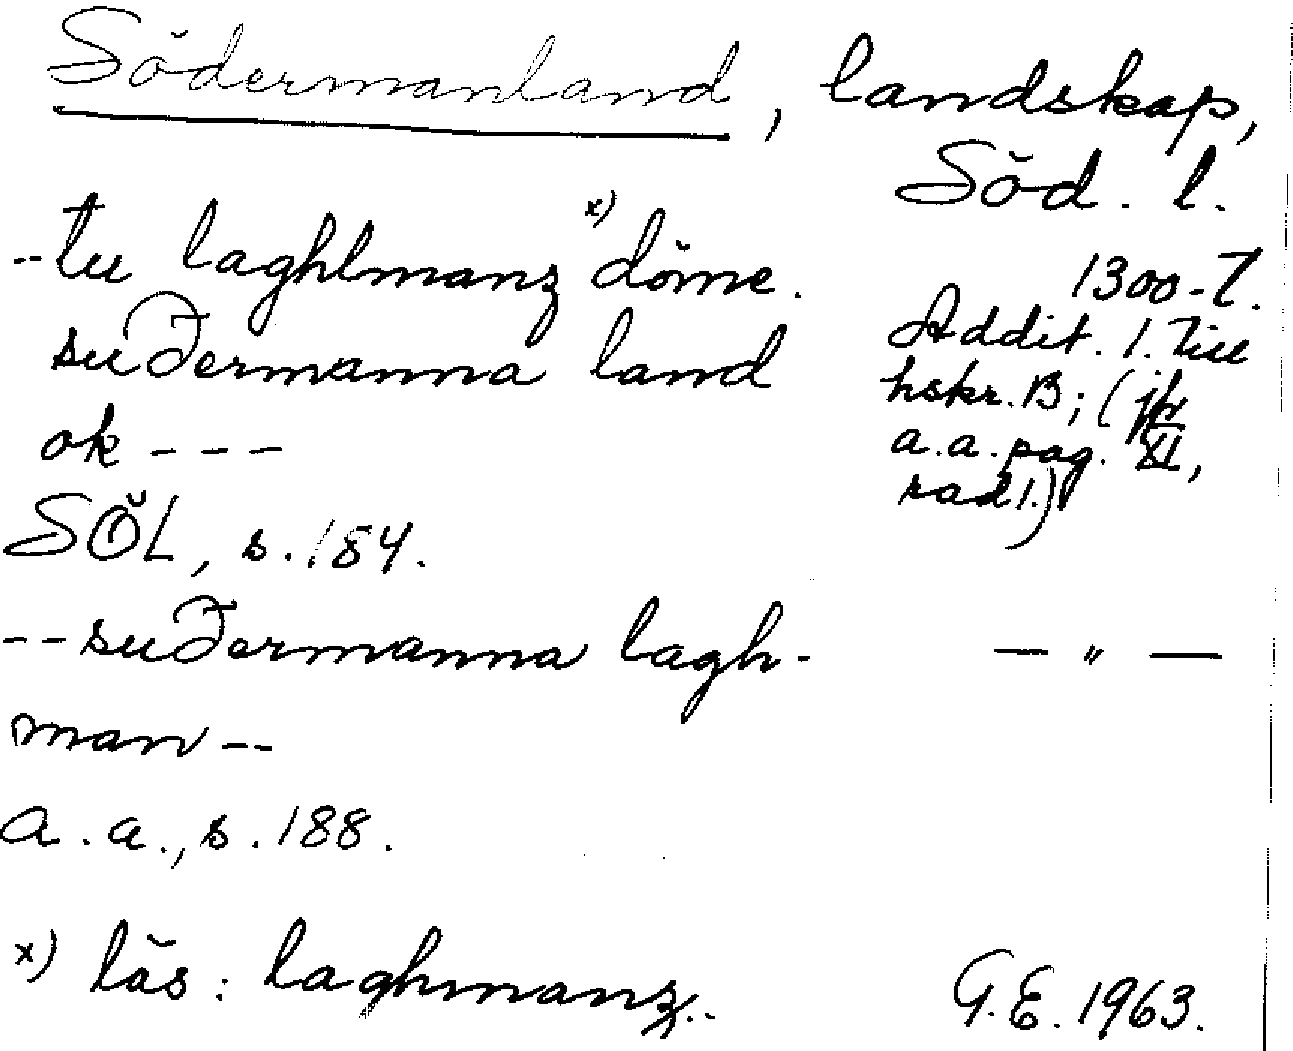 Södermanland, landskap,
Söd. l.
--tu laghlmanz x) döme.
suðermanna land
ok ---
SÖL, s. 184.
1300-t.
Addit. 1. till
hskr. B; (jfr
a.a. pag. XI,
rad 1.)
--suðermanna lagh-
man--
— " —
a.a., s. 188.
x) läs: laghmanz..
G.E. 1963.